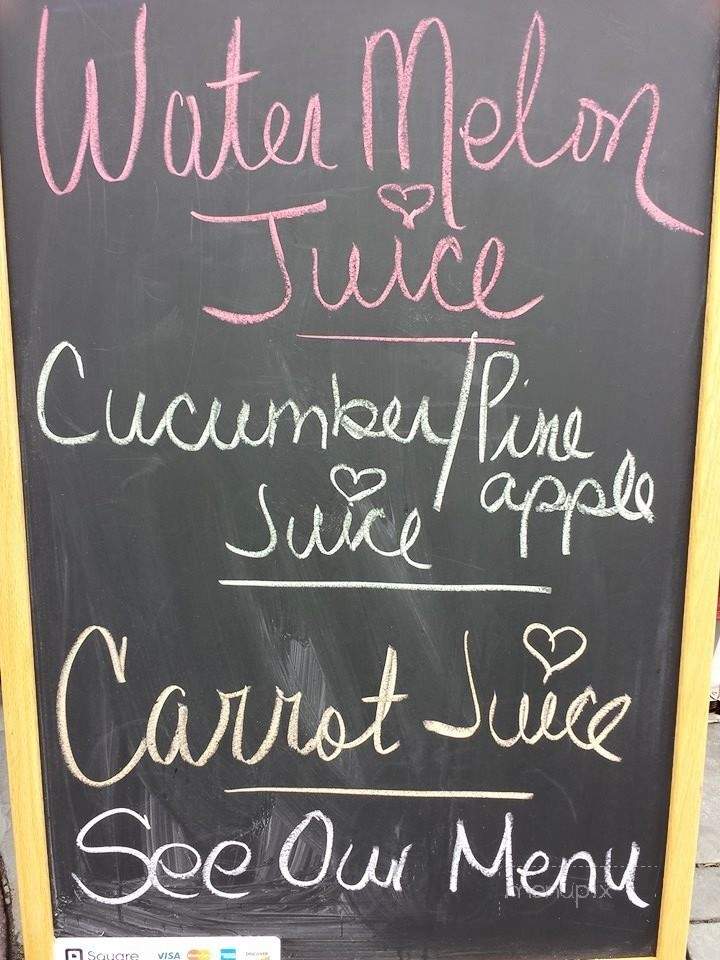 Water Melon
Juice
Cucumber/Pine
apple
Juice
Carrot Juice
See Our Menu
menupix
Square VISA DISCOVER